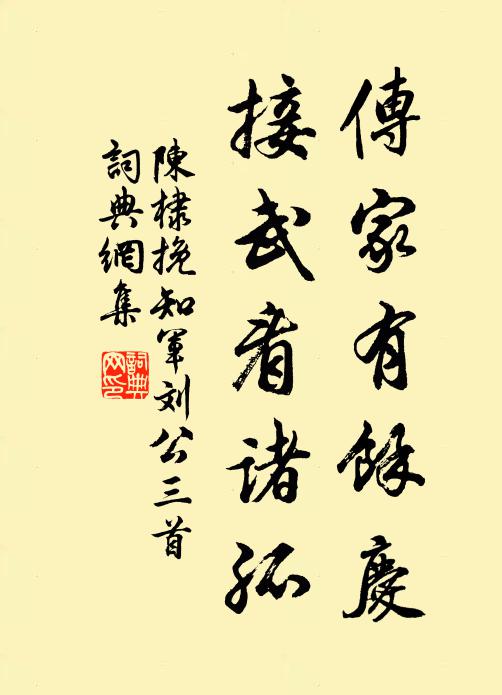 傳家有餘慶
接武看諸孤
陳棣挽知軍刘公三首
詞典網集
詞典网印